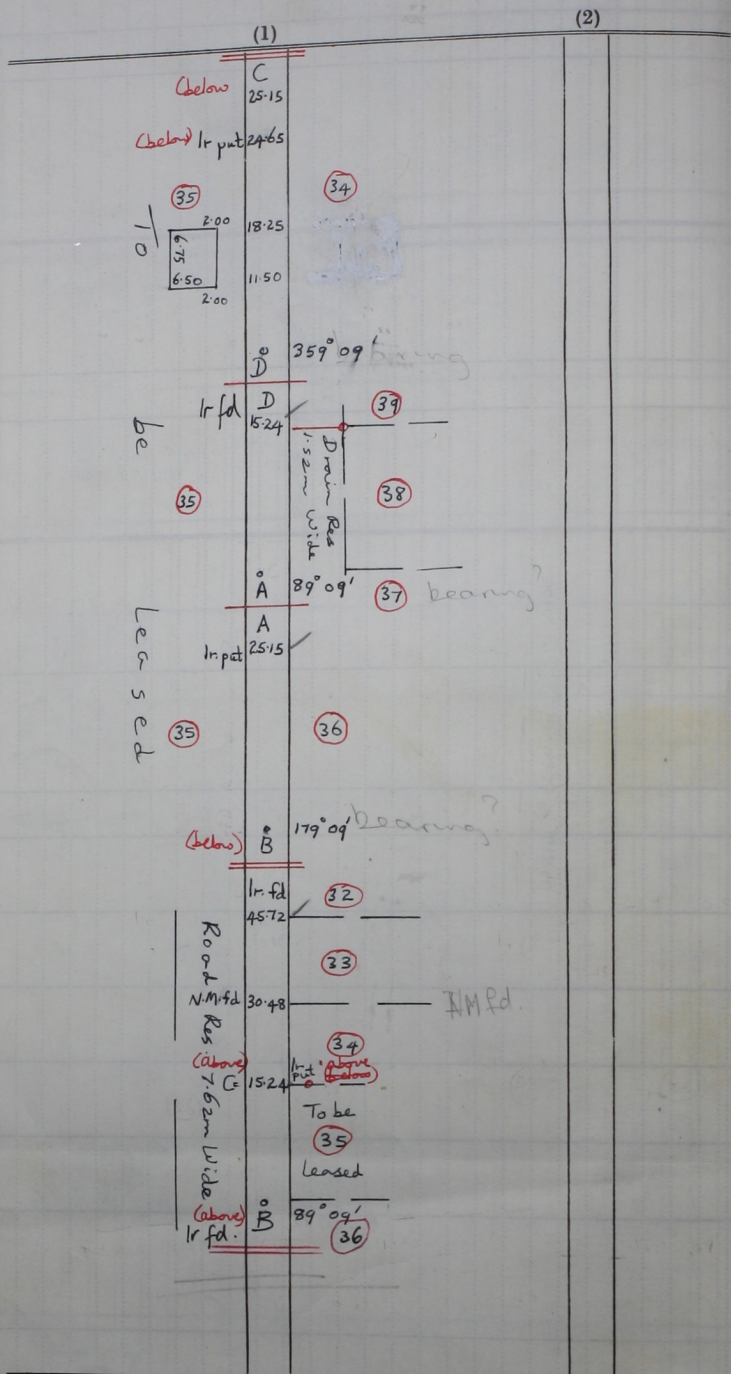 (1)
(2)
(below C
25·15
(below) Ir put 24·65
35
34
To
2·00
18·25
6·75
6·50
11·50
2·00
D
359° 09'
Ir fd D
15·24
39
be
Drain Res
1·52m Wide
35
38
A
89° 09'
37
bearing?
A
Ir. put 25·15
Leased
35
36
179° 09'
bearing?
(below) B
Ir. fd
32
45·72
33
Road Res 7.62m Wide
N.M.fd 30·48
NM fd.
34
(above)
Ir put
above
below)
C 15·24
To be
35
Leased
(above) B
89° 09'
Ir fd.
36